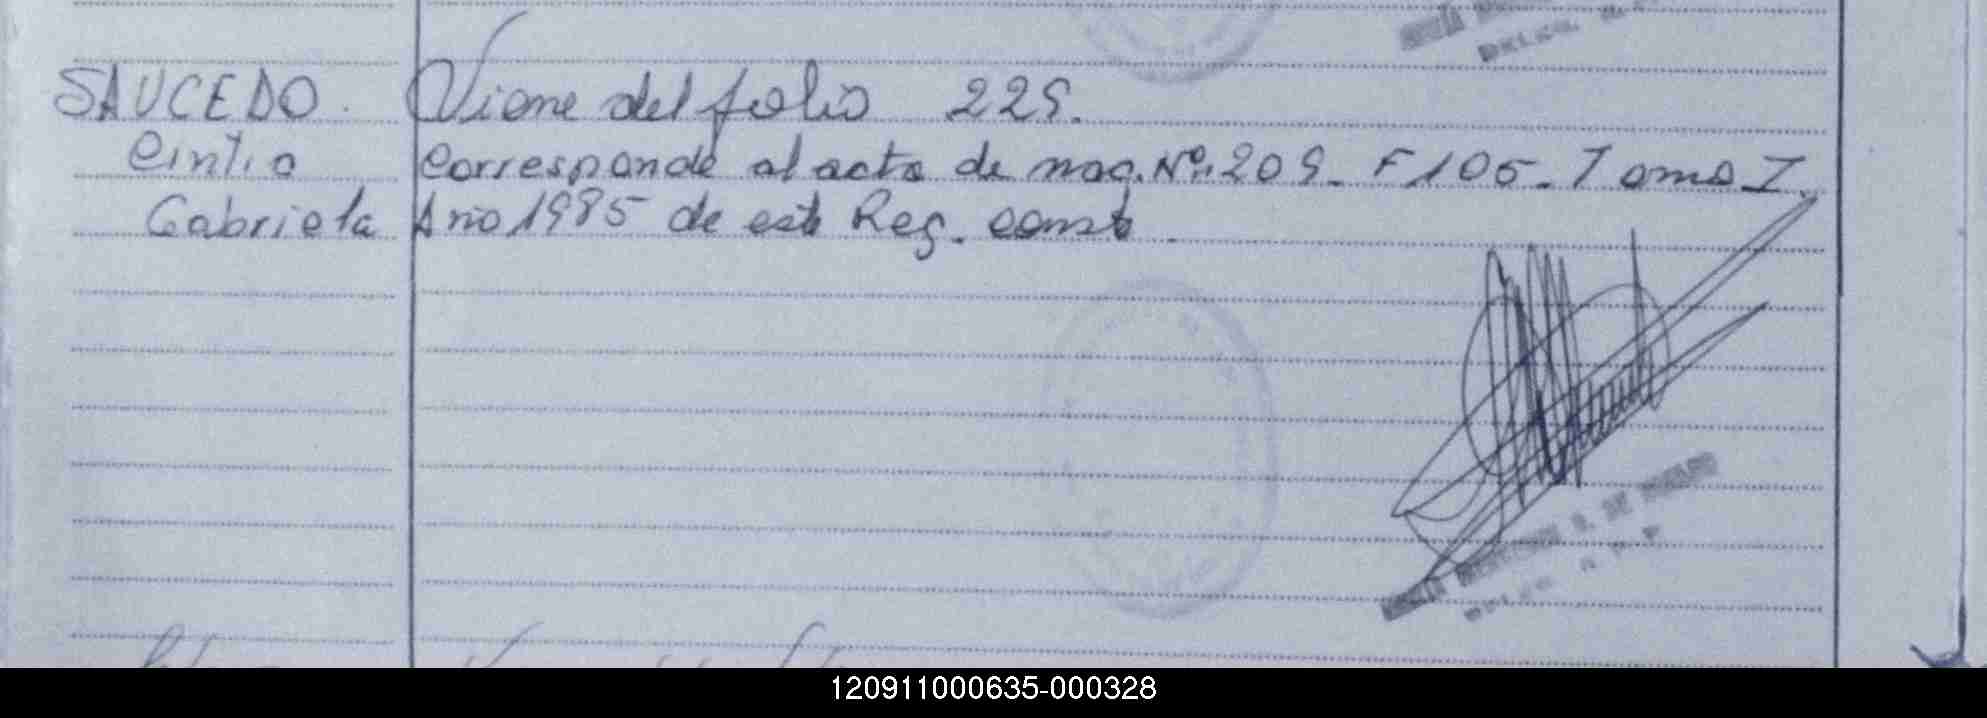 SAUCEDO. Viene del folio 229.
Cintia corresponde al acta de nac. Nº 209. F 105. Tomo I.
Gabriela Año 1985 de este Reg. conste
120911000635-000328